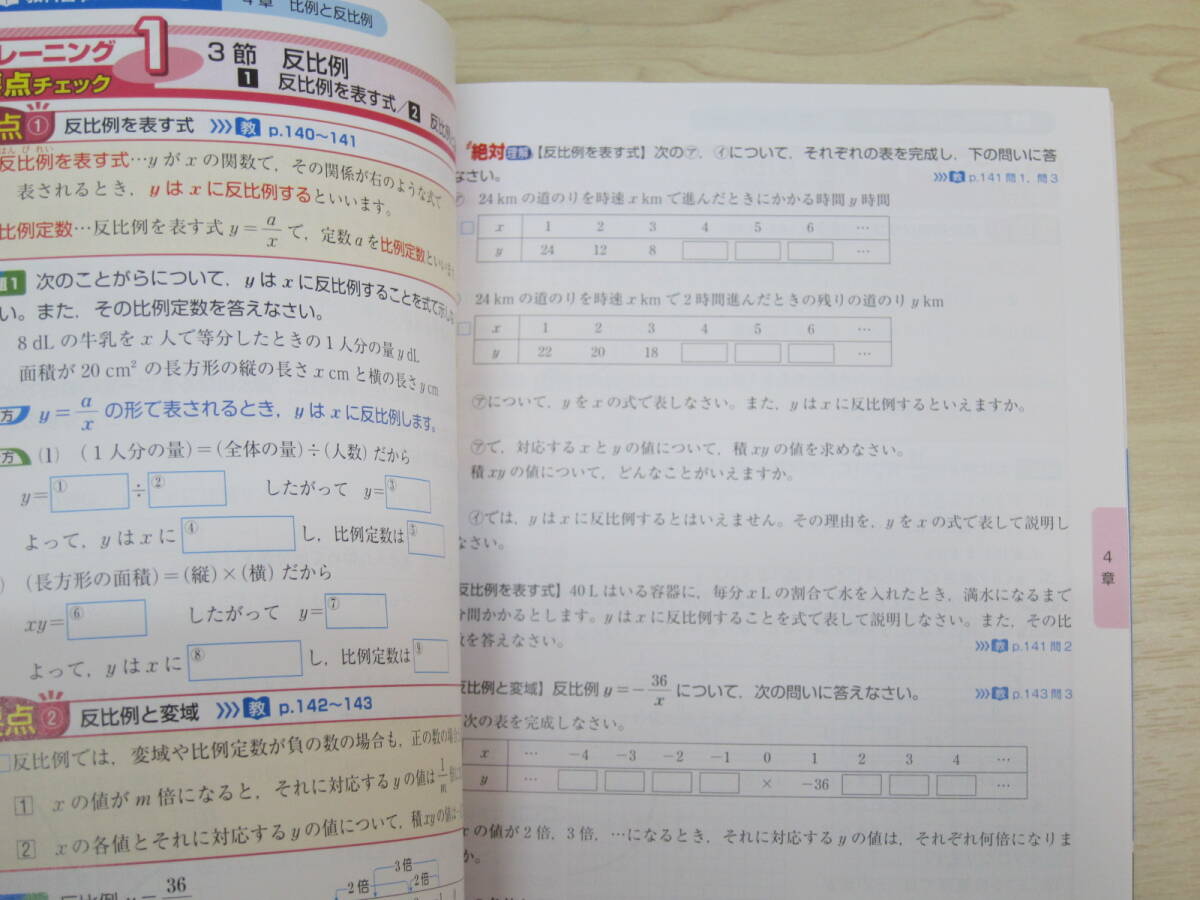 4章 比例と反比例
レーニング 1
点チェック
3節 反比例
1 反比例を表す式/2
点① 反比例を表す式 >>>教 p.140~141
反比例を表す式…yがxの関数で，その関係が右のような式で
表されるとき，yはxに反比例するといいます。
比例定数…反比例を表す式 y=a/x で，定数aを比例定数といいます
1 次のことがらについて，yはxに反比例することを式で示し
い。また，その比例定数を答えなさい。
8 dLの牛乳をx人で等分したときの1人分の量y dL
面積が20 cm²の長方形の縦の長さx cmと横の長さy cm
方 y=a/x の形で表されるとき，yはxに反比例します。
方 (1) (1人分の量)=(全体の量)÷(人数)だから
y=① ÷② したがって y=③
よって，yはxに④ し，比例定数は⑤
) (長方形の面積)=(縦)×(横)だから
xy=⑥ したがって y=⑦
よって，yはxに⑧ し，比例定数は⑨
点② 反比例と変域 >>>教 p.142~143
□反比例では，変域や比例定数が負の数の場合も，正の数の場合
1 xの値がm倍になると，それに対応するyの値は1/m
2 xの各値とそれに対応するyの値について，積xyの値は
反比例 y=36
2倍 3倍 2倍
絶対理解【反比例を表す式】次の㋐，㋑について，それぞれの表を完成し，下の問いに答
なさい。 >>>教 p.141問1，問3
24 kmの道のりを時速x kmで進んだときにかかる時間y時間
x 1 2 3 4 5 6 …
y 24 12 8 □ □ □ …
24 kmの道のりを時速x kmで2時間進んだときの残りの道のりy km
x 1 2 3 4 5 6 …
y 22 20 18 □ □ □ …
㋐について，yをxの式で表しなさい。また，yはxに反比例するといえますか。
㋐で，対応するxとyの値について，積xyの値を求めなさい。
積xyの値について，どんなことがいえますか。
㋑では，yはxに反比例するとはいえません。その理由を，yをxの式で表して説明し
なさい。
反比例を表す式】40 Lはいる容器に，毎分x Lの割合で水を入れたとき，満水になるまで
分間かかるとします。yはxに反比例することを式で表して説明しなさい。また，その比
数を答えなさい。 >>>教 p.141問2
反比例と変域】反比例 y=-36/x について，次の問いに答えなさい。 >>>教 p.143問3
次の表を完成しなさい。
x … -4 -3 -2 -1 0 1 2 3 4 …
y … □ □ □ □ × -36 □ □ □ …
xの値が2倍，3倍，…になるとき，それに対応するyの値は，それぞれ何倍になりま
か。
4章